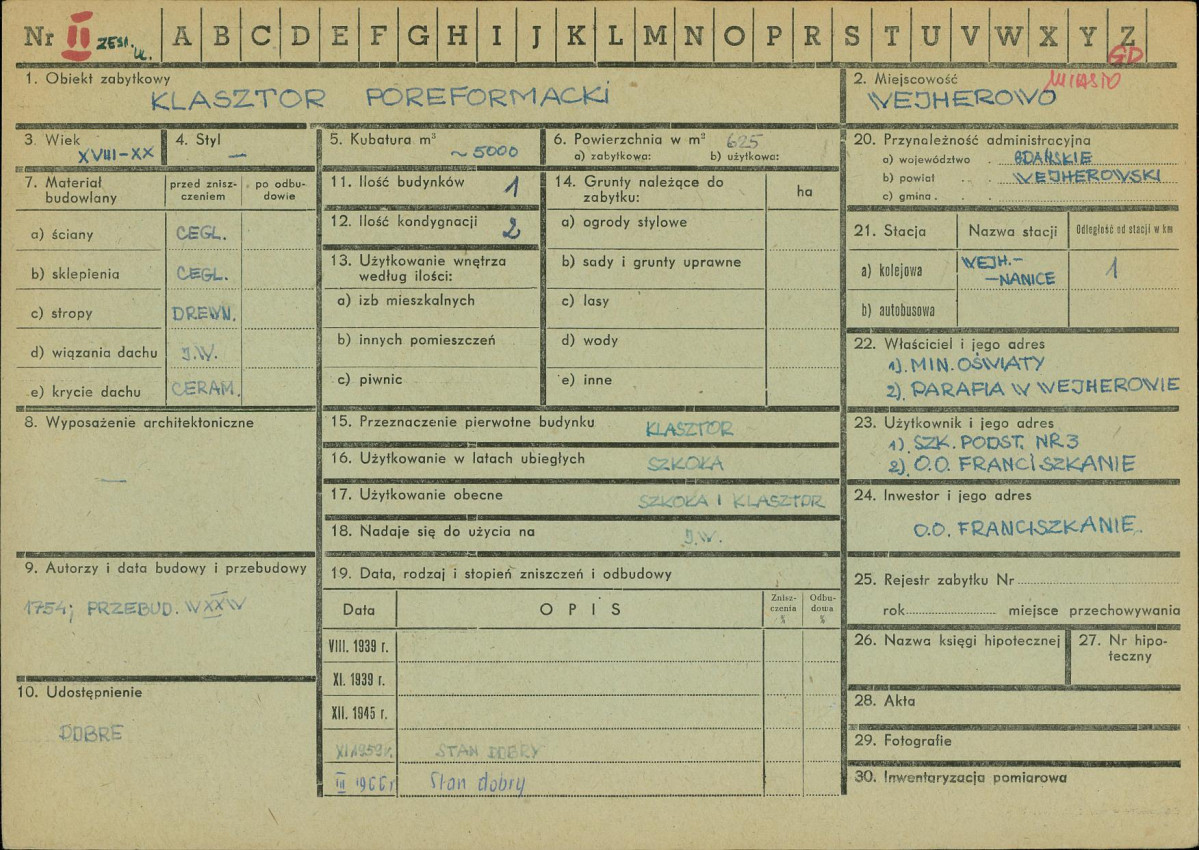 Nr II A B C D E F G H I J K L M N O P R S T U V W X Y Z
GD
1. Obiekt zabytkowy
KLASZTOR POREFORMACKI
2. Miejscowość MIASTO
WEJHEROWO
3. Wiek
XVIII-XX
4. Styl
—
5. Kubatura m³
~5000
6. Powierzchnia w m² 625
a) zabytkowa: b) użytkowa:
7. Materiał budowlany
przed zniszczeniem
po odbudowie
a) ściany CEGL.
b) sklepienia CEGL.
c) stropy DREWN.
d) wiązania dachu J.W.
e) krycie dachu CERAM.
8. Wyposażenie architektoniczne
—
9. Autorzy i data budowy i przebudowy
1754; PRZEBUD. W XX W
10. Udostępnienie
DOBRE
11. Ilość budynków 1
12. Ilość kondygnacji 2
13. Użytkowanie wnętrza
według ilości:
a) izb mieszkalnych
b) innych pomieszczeń
c) piwnic
14. Grunty należące do
zabytku:
ha
a) ogrody stylowe
b) sady i grunty uprawne
c) lasy
d) wody
e) inne
15. Przeznaczenie pierwotne budynku KLASZTOR
16. Użytkowanie w latach ubiegłych SZKOŁA
17. Użytkowanie obecne SZKOŁA I KLASZTOR
18. Nadaje się do użycia na J.W.
19. Data, rodzaj i stopień zniszczeń i odbudowy
Data
OPIS
Zniszczenia %
Odbudowa %
VIII. 1939 r.
XI. 1939 r.
XII. 1945 r.
XI 1959 r. STAN DOBRY
III 1966 r Stan dobry
20. Przynależność administracyjna
a) województwo . GDAŃSKIE
b) powiat . . WEJHEROWSKI
c) gmina . . .
21. Stacja
Nazwa stacji
Odległość od stacji w km
a) kolejowa
WEJH.-
-NANICE
1
b) autobusowa
22. Właściciel i jego adres
1). MIN. OŚWIATY
2). PARAFIA W WEJHEROWIE
23. Użytkownik i jego adres
1). SZK. PODST. NR 3
2). O.O. FRANCISZKANIE
24. Inwestor i jego adres
O.O. FRANCISZKANIE.
25. Rejestr zabytku Nr
rok miejsce przechowywania
26. Nazwa księgi hipotecznej
27. Nr hipo-
teczny
28. Akta
29. Fotografie
30. Inwentaryzacja pomiarowa